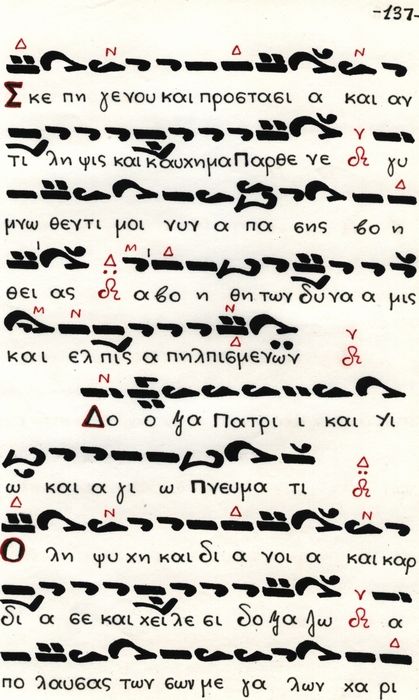 -137-
Σκε πη γενου και προστασι α και αν
τι ληψις και καυχημα Παρθε νε γυ
μνω θεντι μοι νυν α πα σης βο η
θει ας α βο η θη των δυ να α μις
και ελ πις α πηλπισμενων
Δο ο ξα Πατρι ι και Υι
ω και α γι ω Πνευμα τι
Ο λη ψυ χη και δι α νοι α και καρ
δι α σε και χει λε σι δο ξα ζω α
πο λαυσας των σων με γα λων χα ρι